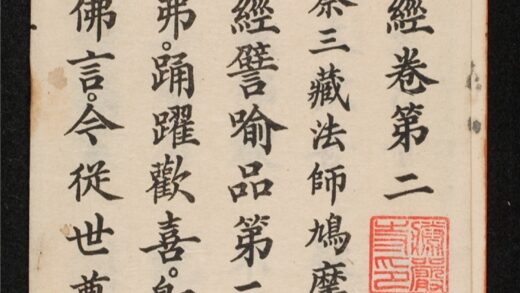 經卷第二
秦三藏法師鳩摩
經譬喻品第
弗。踊躍歡喜。
佛言。今從世尊